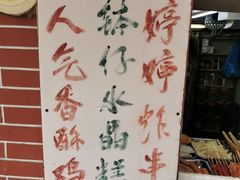 婷婷炸串
钵仔水晶糕
人气香酥鸡